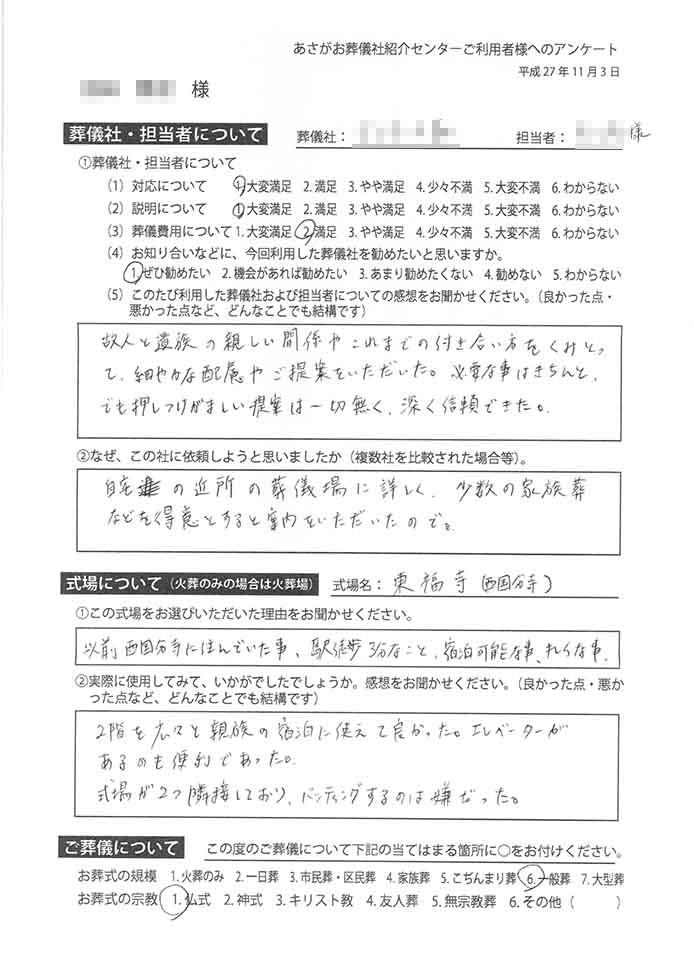 あさがお葬儀社紹介センターご利用者様へのアンケート
平成27年11月3日
様
葬儀社・担当者について 葬儀社: 担当者: 様
①葬儀社・担当者について
(1) 対応について 1.大変満足 2.満足 3.やや満足 4.少々不満 5.大変不満 6.わからない
(2) 説明について 1.大変満足 2.満足 3.やや満足 4.少々不満 5.大変不満 6.わからない
(3) 葬儀費用について 1.大変満足 2.満足 3.やや満足 4.少々不満 5.大変不満 6.わからない
(4) お知り合いなどに、今回利用した葬儀社を勧めたいと思いますか。
1.ぜひ勧めたい 2.機会があれば勧めたい 3.あまり勧めたくない 4.勧めない 5.わからない
(5) このたび利用した葬儀社および担当者についての感想をお聞かせください。(良かった点・
悪かった点など、どんなことでも結構です)
故人と遺族の親しい関係やこれまでの付き合い方をくみとっ
て、細やかな配慮やご提案をいただいた。必要な事はきちんと、
でも押しつけがましい提案は一切無く、深く信頼できた。
②なぜ、この社に依頼しようと思いましたか(複数社を比較された場合等)。
自宅の近所の葬儀場に詳しく、少数の家族葬
などを得意とすると案内をいただいたので。
式場について(火葬のみの場合は火葬場) 式場名: 東福寺(西国分寺)
①この式場をお選びいただいた理由をお聞かせください。
以前西国分寺に住んでいた事、駅徒歩3分なこと、宿泊可能な事、きれいな事。
②実際に使用してみて、いかがでしたでしょうか。感想をお聞かせください。(良かった点・悪か
った点など、どんなことでも結構です)
2階を広々と親族の宿泊に使えて良かった。エレベーターが
あるのも便利であった。
式場が2つ隣接しており、バッティングするのは嫌だった。
ご葬儀について この度のご葬儀について下記の当てはまる箇所に○をお付けください。
お葬式の規模 1.火葬のみ 2.一日葬 3.市民葬・区民葬 4.家族葬 5.こぢんまり葬 6.一般葬 7.大型葬
お葬式の宗教 1.仏式 2.神式 3.キリスト教 4.友人葬 5.無宗教葬 6.その他( )